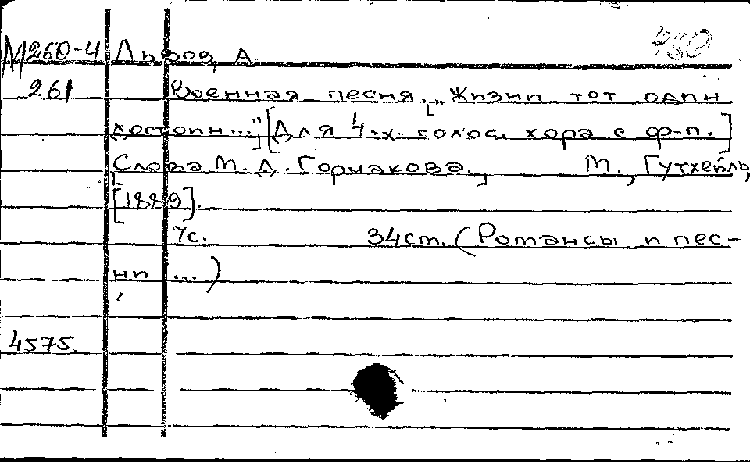 М260-4 Львов, А.
480
261 Военная песня. „Жизни тот один
достоин..."] [Для 4-х голос. хора с ф-п.]
Слова М. Д. Горчакова. М., Гутхейль,
[1889].
7с. 34см. (Романсы и пес-
ни ...)
4575